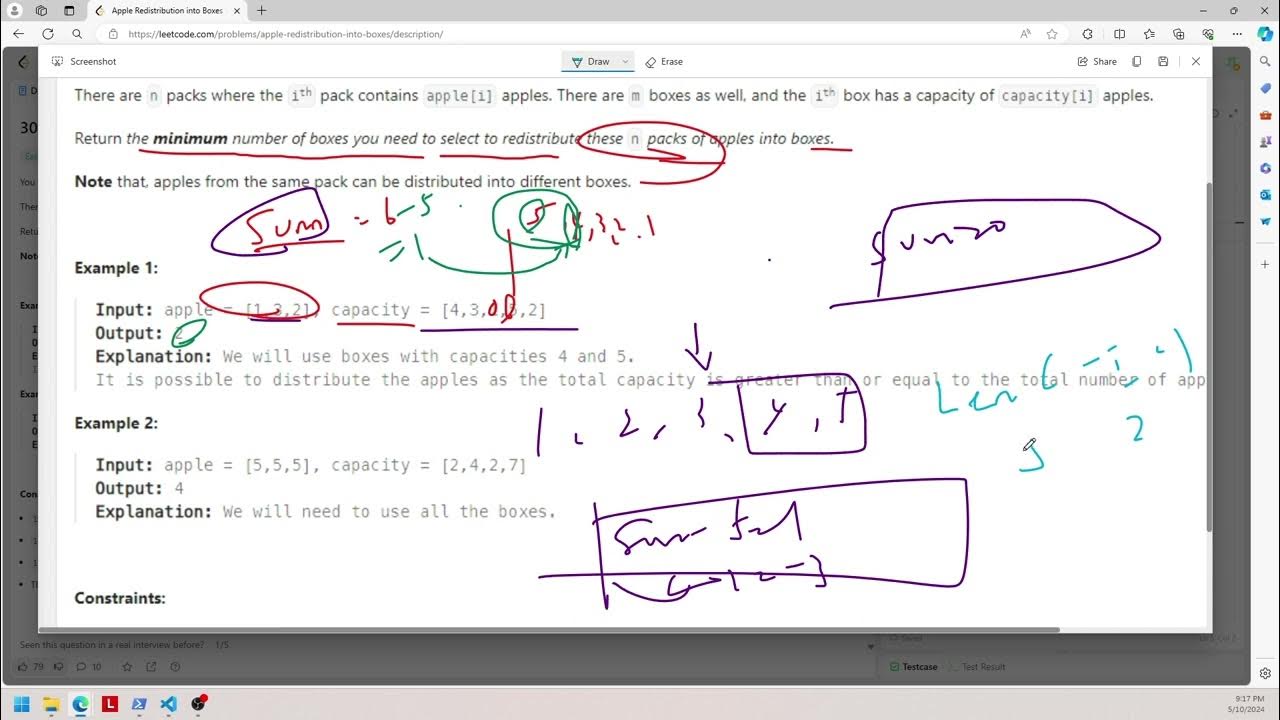 Apple Redistribution into Boxes
https://leetcode.com/problems/apple-redistribution-into-boxes/description/
Screenshot
Draw
Erase
Share
There are n packs where the ith pack contains apple[i] apples. There are m boxes as well, and the ith box has a capacity of capacity[i] apples.
Return the minimum number of boxes you need to select to redistribute these n packs of apples into boxes.
Note that, apples from the same pack can be distributed into different boxes.
Sum = 6-5
5 4,3,2.1
=1
Example 1:
Input: apple = [1,3,2], capacity = [4,3,1,5,2]
Output: 2
Explanation: We will use boxes with capacities 4 and 5.
It is possible to distribute the apples as the total capacity is greater than or equal to the total number of app
1, 2, 3, 4, 5
2
Example 2:
Input: apple = [5,5,5], capacity = [2,4,2,7]
Output: 4
Explanation: We will need to use all the boxes.
Constraints:
Seen this question in a real interview before? 1/5
79
10
Saved
Testcase
Test Result
9:17 PM
5/10/2024